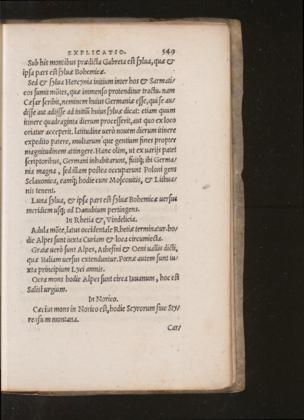 EXPLICATIO. 549
Sub his montibus prædicta Gabreta est sylua, quæ &
ipsa pars est syluæ Bohemicæ.
Sed & sylua Hercynia initium inter hos & Sarmati-
cos sumit mōtes, quæ immenso protenditur tractu. nam
Cæsar scribit, neminem huius Germaniæ esse, qui se au-
disse aut adijsse ad initiū huius syluæ dicat: etiam quum
itinere quadraginta dierum processerit, aut quo ex loco
oriatur acceperit. Latitudine uerò nouem dierum itinere
expedito patere, multarumq́ue gentium fines propter
magnitudinem attingere. Hanc olim, ut ex uarijs patet
scriptoribus, Germani inhabitarunt, fuitq́; ibi Germa-
nia magna, sed illam postea occuparunt Poloni gens
Sclauonica, eamq́; hodie cum Moscouitis, & Lithua-
nis tenent.
Luna sylua, & ipsa pars est syluæ Bohemicæ uersus
meridiem usq; ad Danubium pertingens.
In Rhetia &, Vindelicia.
Adula mōte, latus occidentale Rhetiæ terminatur. ho-
die Alpes sunt iuxta Curiam & loca circumiecta.
Graiæ uerò sunt Alpes, Athesini & Oeni uallis dicti,
quæ Italiam uersus extenduntur. Pœnæ autem sunt iu-
xta principium Lyci amnis.
Ocra mons hodie Alpes sunt circa Iuuanum, hoc est
Saltsburgium.
In Norico.
Cæcius mons in Norico est, hodie Styrorum siue Sty-
rensium montana.
Car/